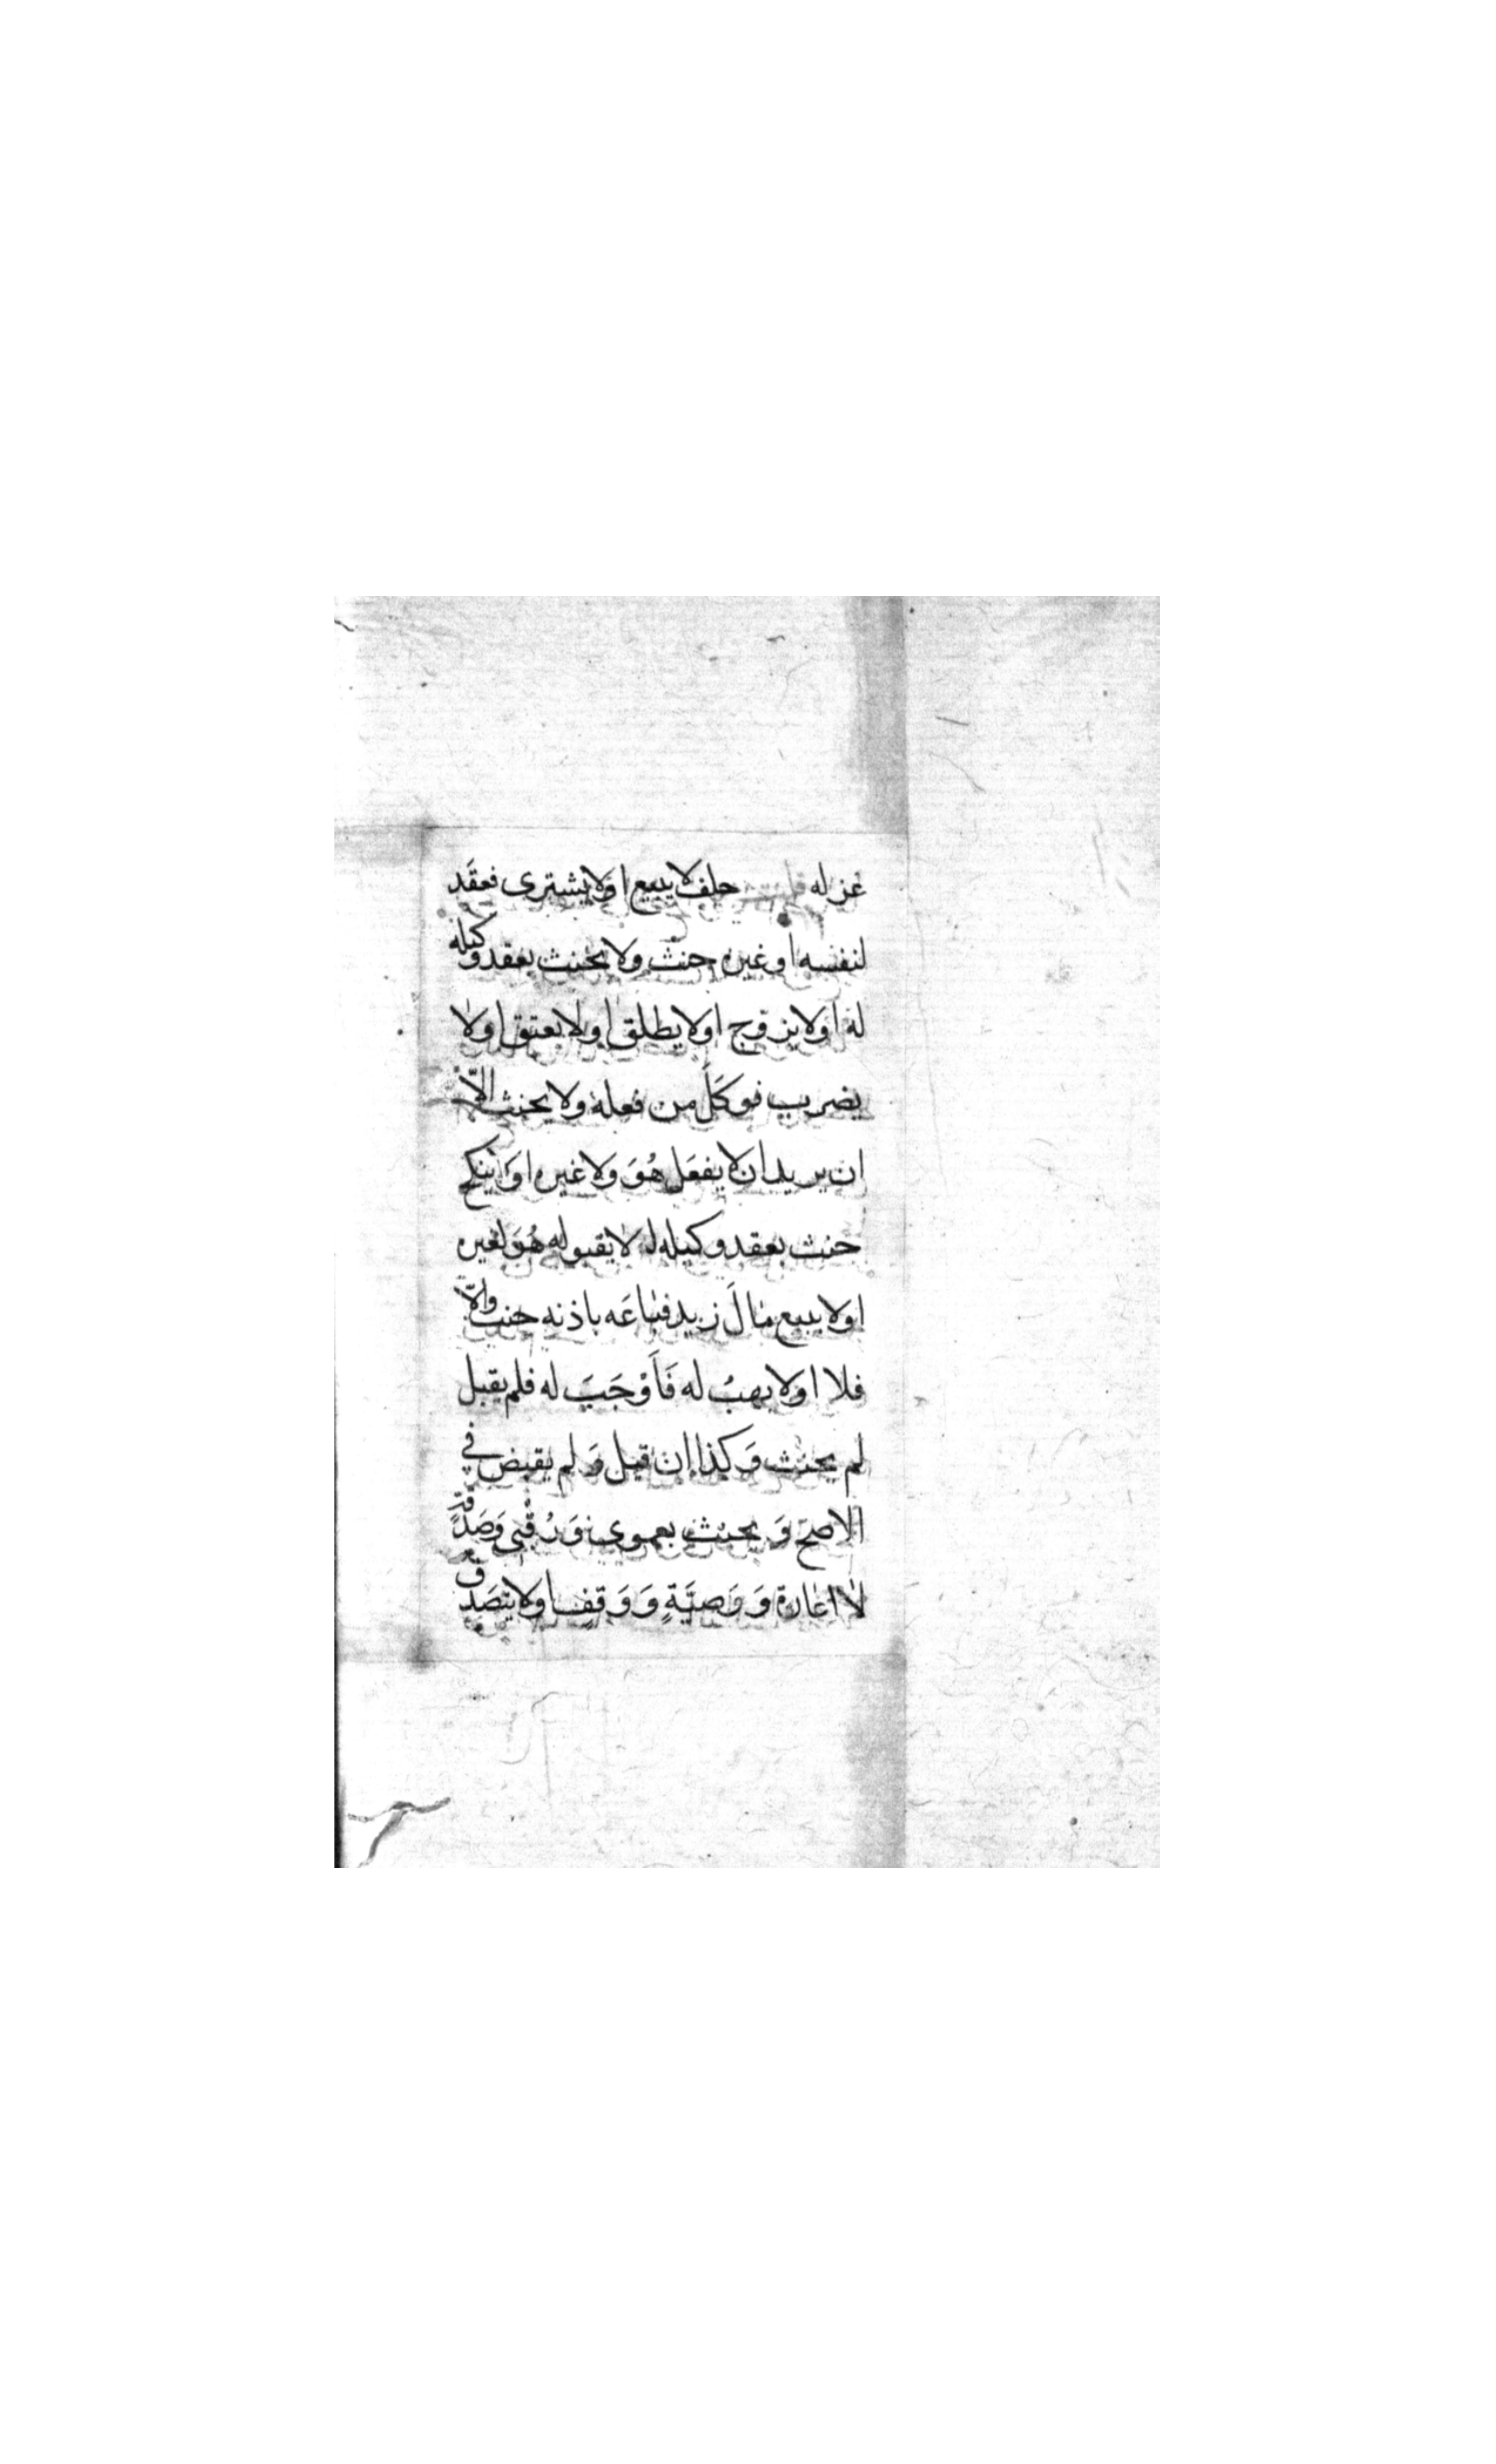 عزله فصل حلف لا يبيع او لا يشترى فعقَد
لنفسه او غيره حنث ولا يحنث بعقد وكيله
له او لا يزوّج او لا يطلق او لا يعتق او لا
يضرب فوكَّلَ من فعله ولا يحنث الّا
ان يريد ان لا يفعَل هُوَ ولا غيره اوَلا ينكح
حنث بعقد وكيله له لا بقبوله هُوَ لغيره
او لا يبيع مالَ زيد فباعَه باذنه حنث والّا
فلا او لا يهبُ له فَأَوْجَبَ له فلم يقبل
لم يحنث وَكذا ان قبل وَلم يقبض في
الاصحّ وَيحنث بعمرى وَرُقْبى وَصَدَقَةٍ
لا اعارة وَوَصيَّةٍ وَوَقفٍ او لا يتصَدق